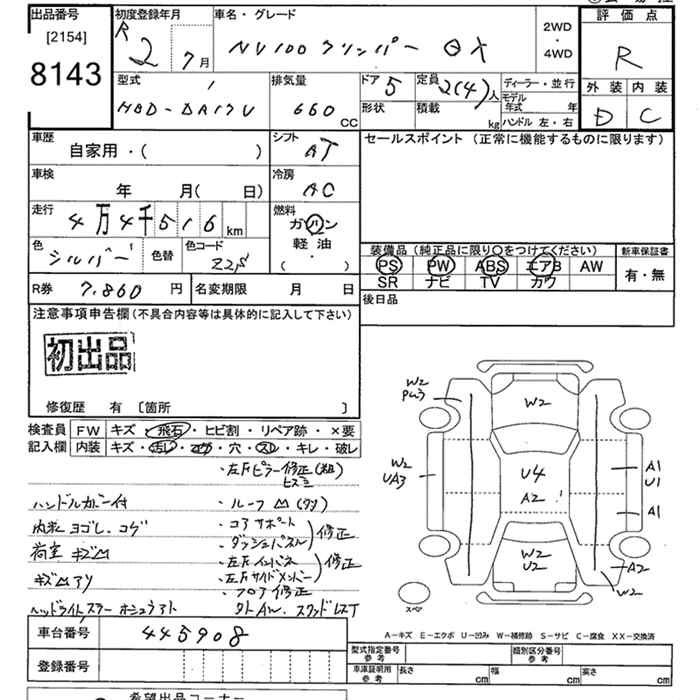 出品番号 初度登録年月 車名・グレード 2WD・4WD 評価点
[2154] R 2 7月 NV100クリッパー GX R
8143
型式 排気量 ドア 5 定員 2(4)人 ディーラー・並行 外装 内装
HBD-DR17V 660 CC 形状 積載 kg モデル年式 年 D C
ハンドル 左・右
車歴 シフト セールスポイント (正常に機能するものに限ります)
自家用・( ) AT
車検 冷房
年 月( 日) AC
走行 燃料
4万4千516 km ガソリン
軽油
・( )
色 シルバー 色替 色コード 装備品 (純正品に限り○をつけてください) 新車保証書
PS PW ABS エアB AW 有・無
SR ナビ TV カワ
R券 7,860円 名変期限 月 日 後日品
注意事項申告欄 (不具合内容等は具体的に記入して下さい)
初出品
修復歴 有 〔箇所 〕
検査員 FW キズ・飛石・ヒビ割・リペア跡・×要
記入欄 内装 キズ・汚レ・コゲ・穴・スレ・キレ・破レ
・左Fピラー修正(粗)
ヒズミ
ハンドルカバー付 ・ルーフ
内装ヨゴレ、コゲ ・コアサポート
・ダッシュパネル 修正
荷室キズ ・左Fインパネ
・左Fサイドメンバー 修正
・フロア修正
W2
PW3
W2
W2
UA3
U4
A2
A1
U1
A1
W2
U2
A2
W2
スペア
A−キズ E−エクボ U−凹み W−補修跡 S−サビ C−腐食 XX−交換済
車台番号 445908 型式指定番号 参考 類別区分番号 参考
登録番号 車庫証明用 参考 長さ cm 幅 cm 高さ cm
希望出品コーナー